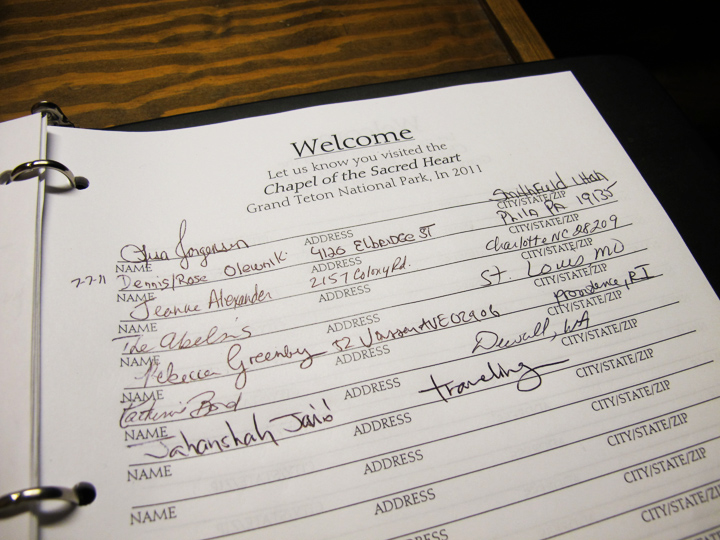 Welcome
Let us know you visited the
Chapel of the Sacred Heart
Grand Teton National Park, In 2011
Jorgensen
NAME ADDRESS CITY/STATE/ZIP
7-7-11 Dennis/Rose Olewnik 4126 Elbridge ST Phila PA 19135
NAME ADDRESS CITY/STATE/ZIP
Jeanne Alexander 2157 Colony Rd. Charlotte NC 28209
NAME ADDRESS CITY/STATE/ZIP
The St. Louis, MO
NAME ADDRESS CITY/STATE/ZIP
Rebecca Greenby 52 AVE 02906 Providence, RI
NAME ADDRESS CITY/STATE/ZIP
Bond WA
NAME ADDRESS CITY/STATE/ZIP
Jahanshah traveling
NAME ADDRESS CITY/STATE/ZIP
NAME ADDRESS CITY/STATE/ZIP
NAME ADDRESS CITY/STATE/ZIP